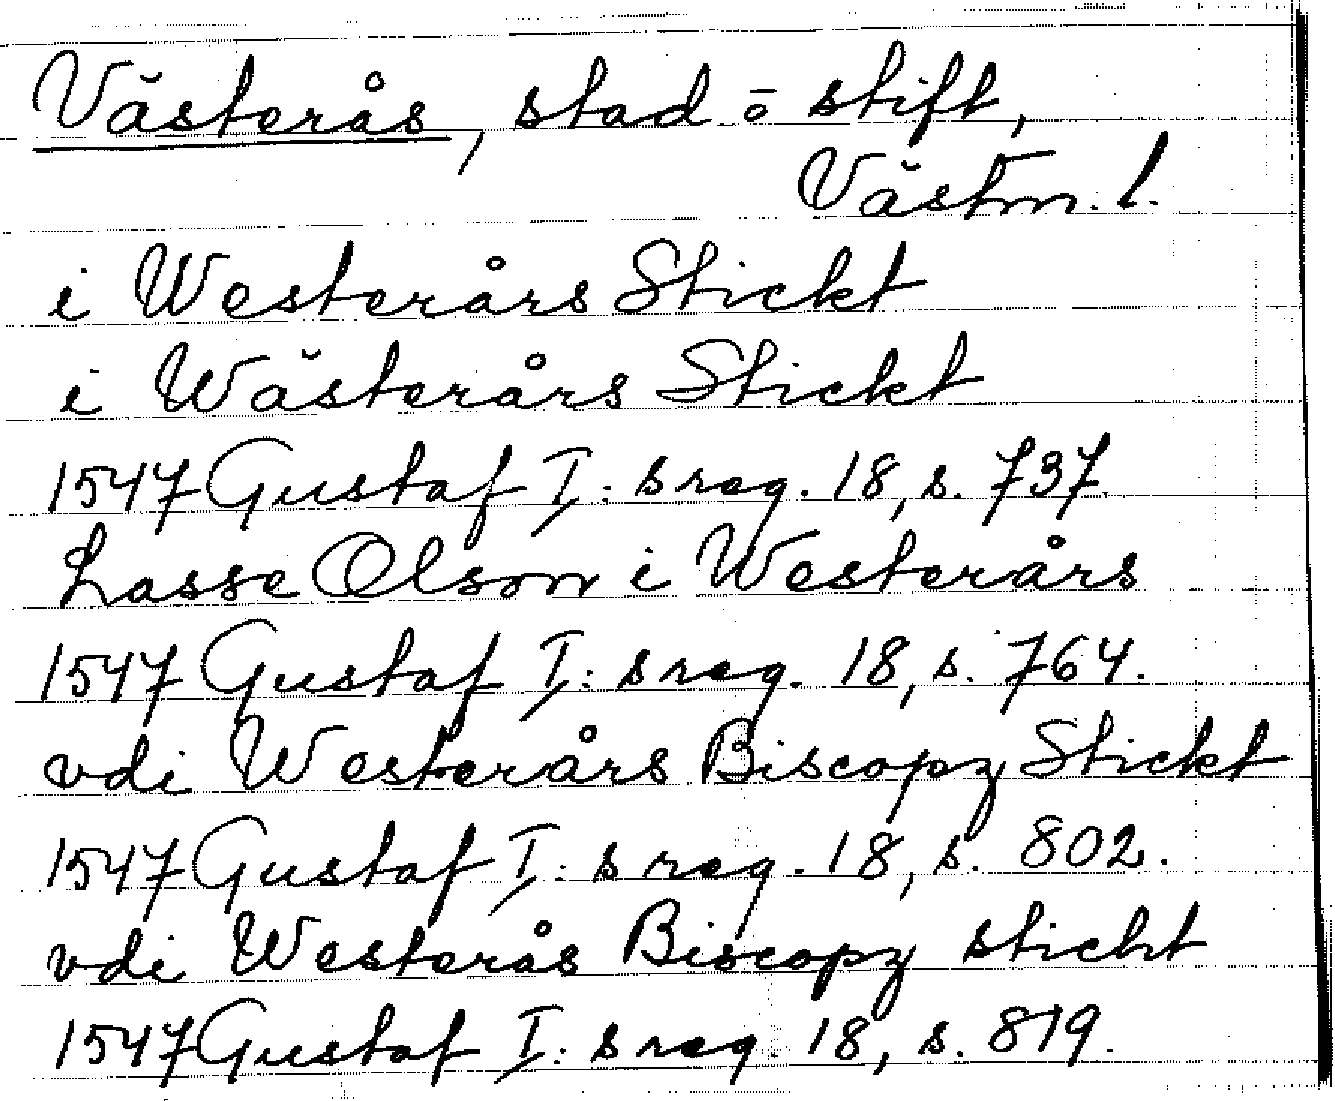 Västerås, stad ō stift,
Västm. l.
i Westerårs Stickt
i Wästerårs Stickt
1547 Gustaf I: s reg. 18, s. 737.
Lasse Olson i Westerårs
1547 Gustaf I: s reg. 18, s. 764.
vdi Westerårs Biscopz Stickt
1547 Gustaf I: s reg. 18, s. 802.
vdi Westerås Biscopz sticht
1547 Gustaf I: s reg. 18, s. 819.